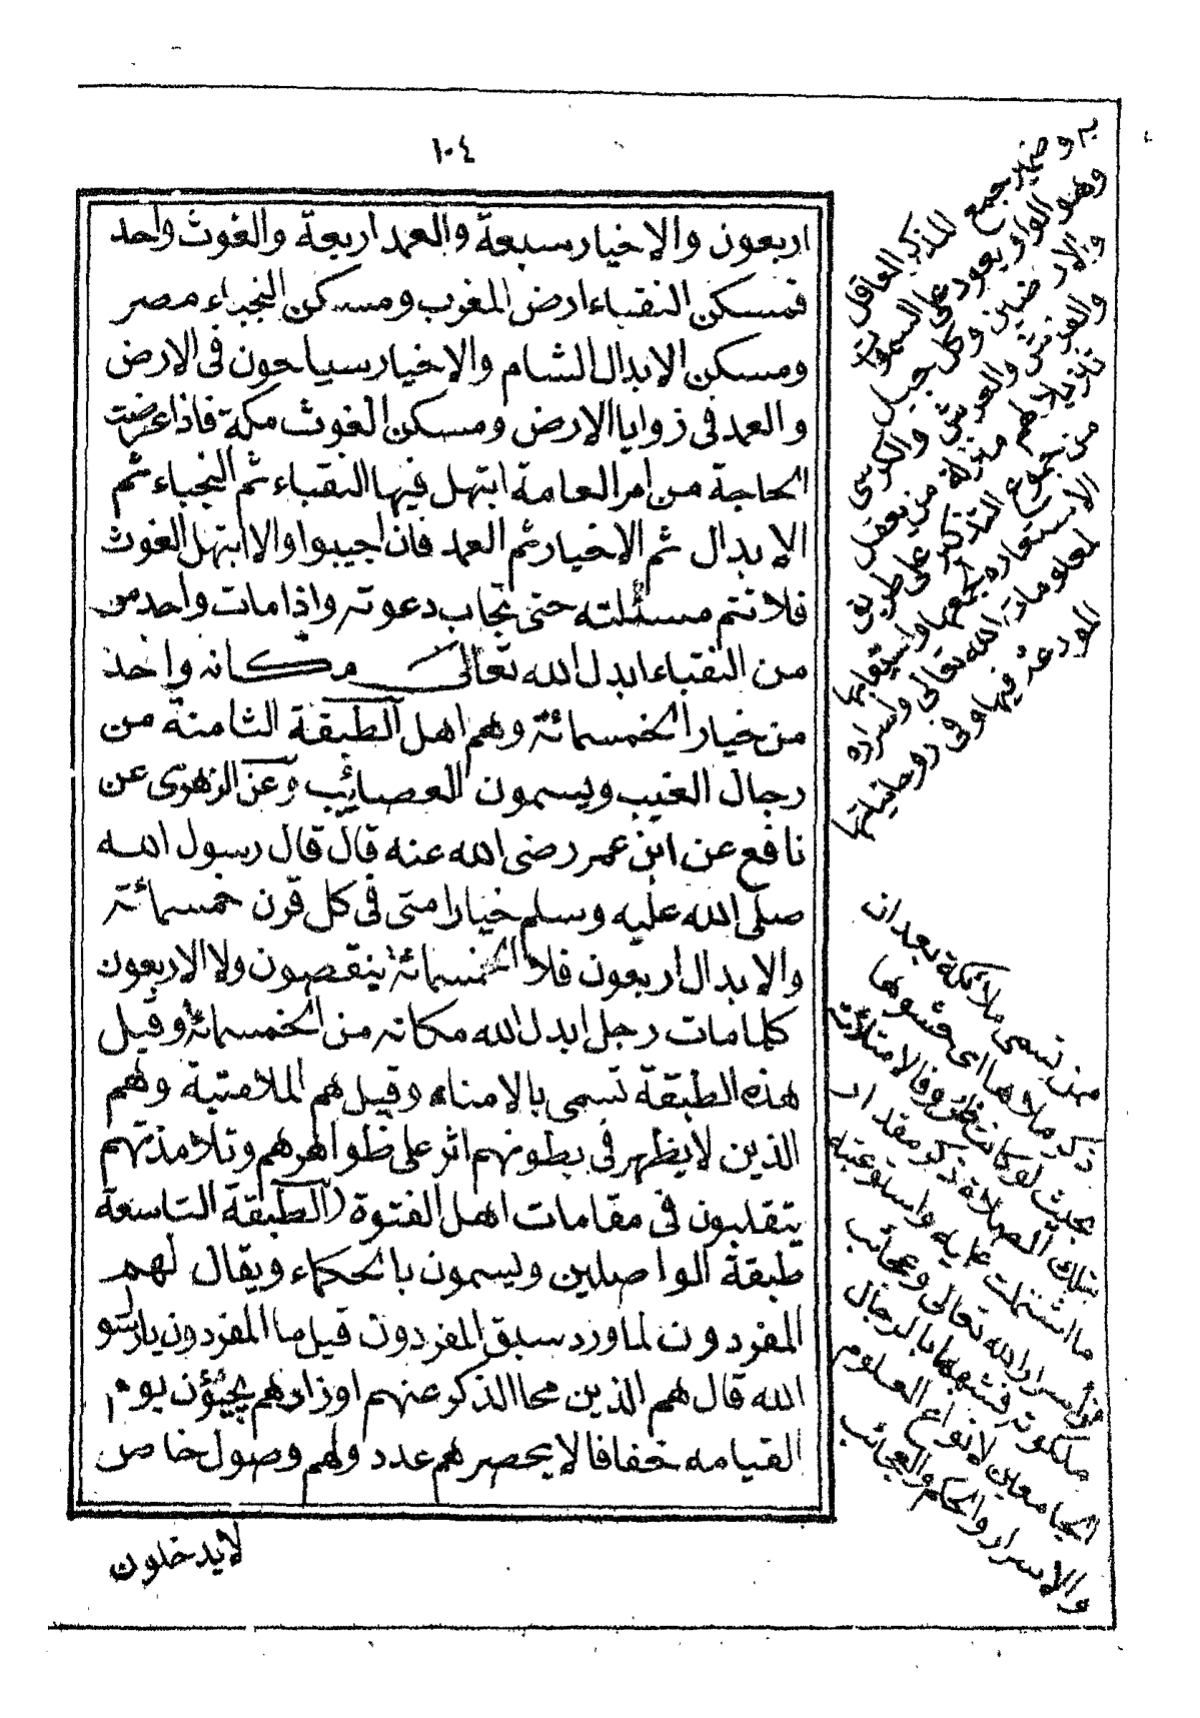 ١٠٤
اربعون والاخيار سبعة والعمد اربعة والغوث واحد
فمسكن النقباء ارض المغرب ومسكن النجباء مصر
ومسكن الابدال الشام والاخيار سياحون فى الارض
والعمد فى زوايا الارض ومسكن الغوث مكة فاذا عرضت
الحاجة من امر العامة ابتهل فيها النقباء ثم النجباء ثم
الابدال ثم الاخيار ثم العمد فان اجيبوا والا ابتهل الغوث
فلا تتم مسئلته حتى تجاب دعوته واذا مات واحد من
من النقباء ابدل الله تعالى مكانه واحد
من خيار الخمسمائة وهم اهل الطبقة الثامنة من
رجال الغيب ويسمون العصائب وعن الزهرى عن
نافع عن ابن عمر رضى الله عنه قال قال رسول الله
صلى الله عليه وسلم خيار امتى فى كل قرن خمسمائة
والابدال اربعون فلا الخمسمائة ينقصون ولا الاربعون
كلما مات رجل ابدل الله مكانه من الخمسمائة وقيل
هذه الطبقة تسمى بالامناء وقيل هم الملامتية وهم
الذين لا يظهر فى بطونهم اثر على ظواهرهم وتلامذتهم
يتقلبون فى مقامات اهل الفتوة (الطبقة التاسعة
طبقة الواصلين ويسمون بالحكماء ويقال لهم
المفردون لما ورد سبق المفردون قيل ما المفردون يا رسو
الله قال هم الذين محا الذكر عنهم اوزارهم يجيئون يوم
القيامه خفافا لا يحصرهم عدد ولهم وصول خاص
لا يدخلون
به وضمير جمع المذكر العاقل
وهو الواو يعود على السموات
والارضين وكل جبل
والفرش والعرش والكرسى
تنزيلا لهم منزلة من يعقل
من جموع التذكير على طريق
الاستعاره لجمعها واستيعابها
لمعلومات الله تعالى واسراره
المودعة فيها وفى روحانياتها
من تسمى ملائكة بعد ان
ذكر ملاها اى حشوها
بحيث لو كانت ظروفا لامتلأت
بتلك الصلاة ذكر مقدار
ما اشتملت عليه واستوعبته
من اسرار الله تعالى وعجائب
ملكوته فشبهها بالرجال
الجامعين لانواع العلوم
والاسرار والحكم والعجائب